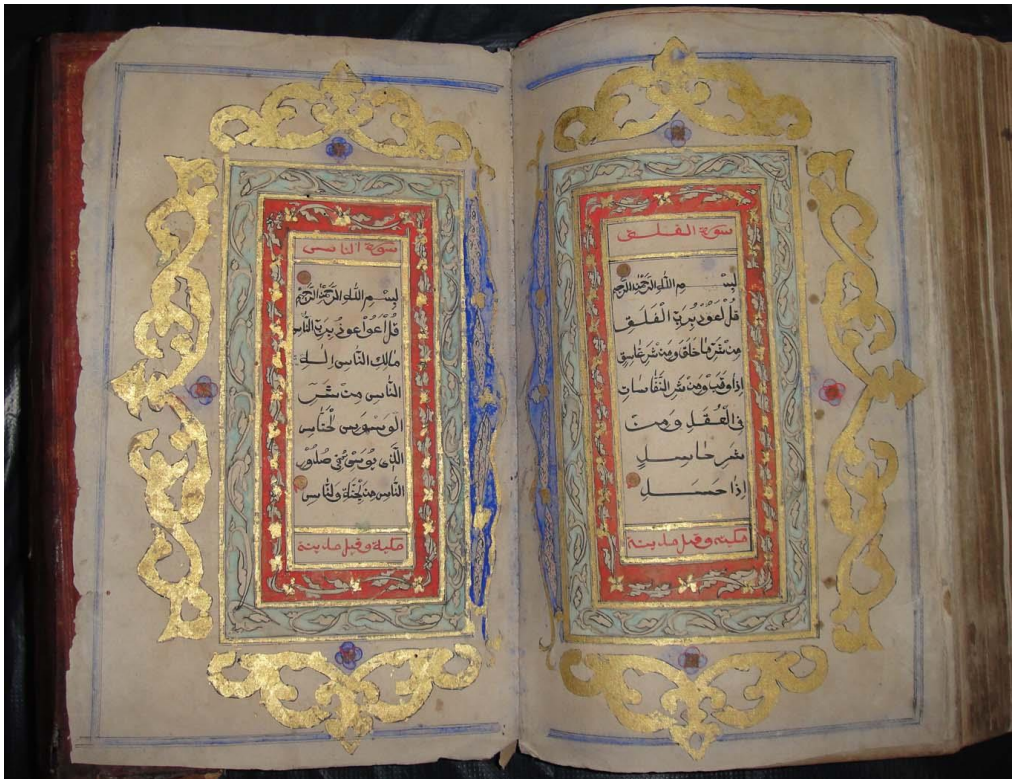 سورة الفلق
بِسْمِ اللّٰهِ الرَّحْمٰنِ الرَّحِيْمِ
قُلْ اَعُوْذُ بِرَبِّ الْفَلَقِ
مِنْ شَرِّ مَا خَلَقَ وَمِنْ شَرِّ غَاسِقٍ
اِذَا وَقَبَ وَمِنْ شَرِّ النَّفَّاسَاتِ
فِى الْعُقَدِ وَمِنْ
شَرِّ حَاسِدٍ
اِذَا حَسَدَ
مكية وقيل مدينة
سورة الناس
بِسْمِ اللّٰهِ الرَّحْمٰنِ الرَّحِيْمِ
قُلْ اَعُوْذُ بِرَبِّ النَّاسِ
مَالِكِ النَّاسِ اِلٰهِ
النَّاسِ مِنْ شَرِّ
الْوَسْوَسِ الْخَنَّاسِ
الَّذِى يُوَسْوِسُ فِى صُدُوْرِ
النَّاسِ مِنَ الْجِنَّةِ وَالنَّاسِ
مكية وقيل مدينة